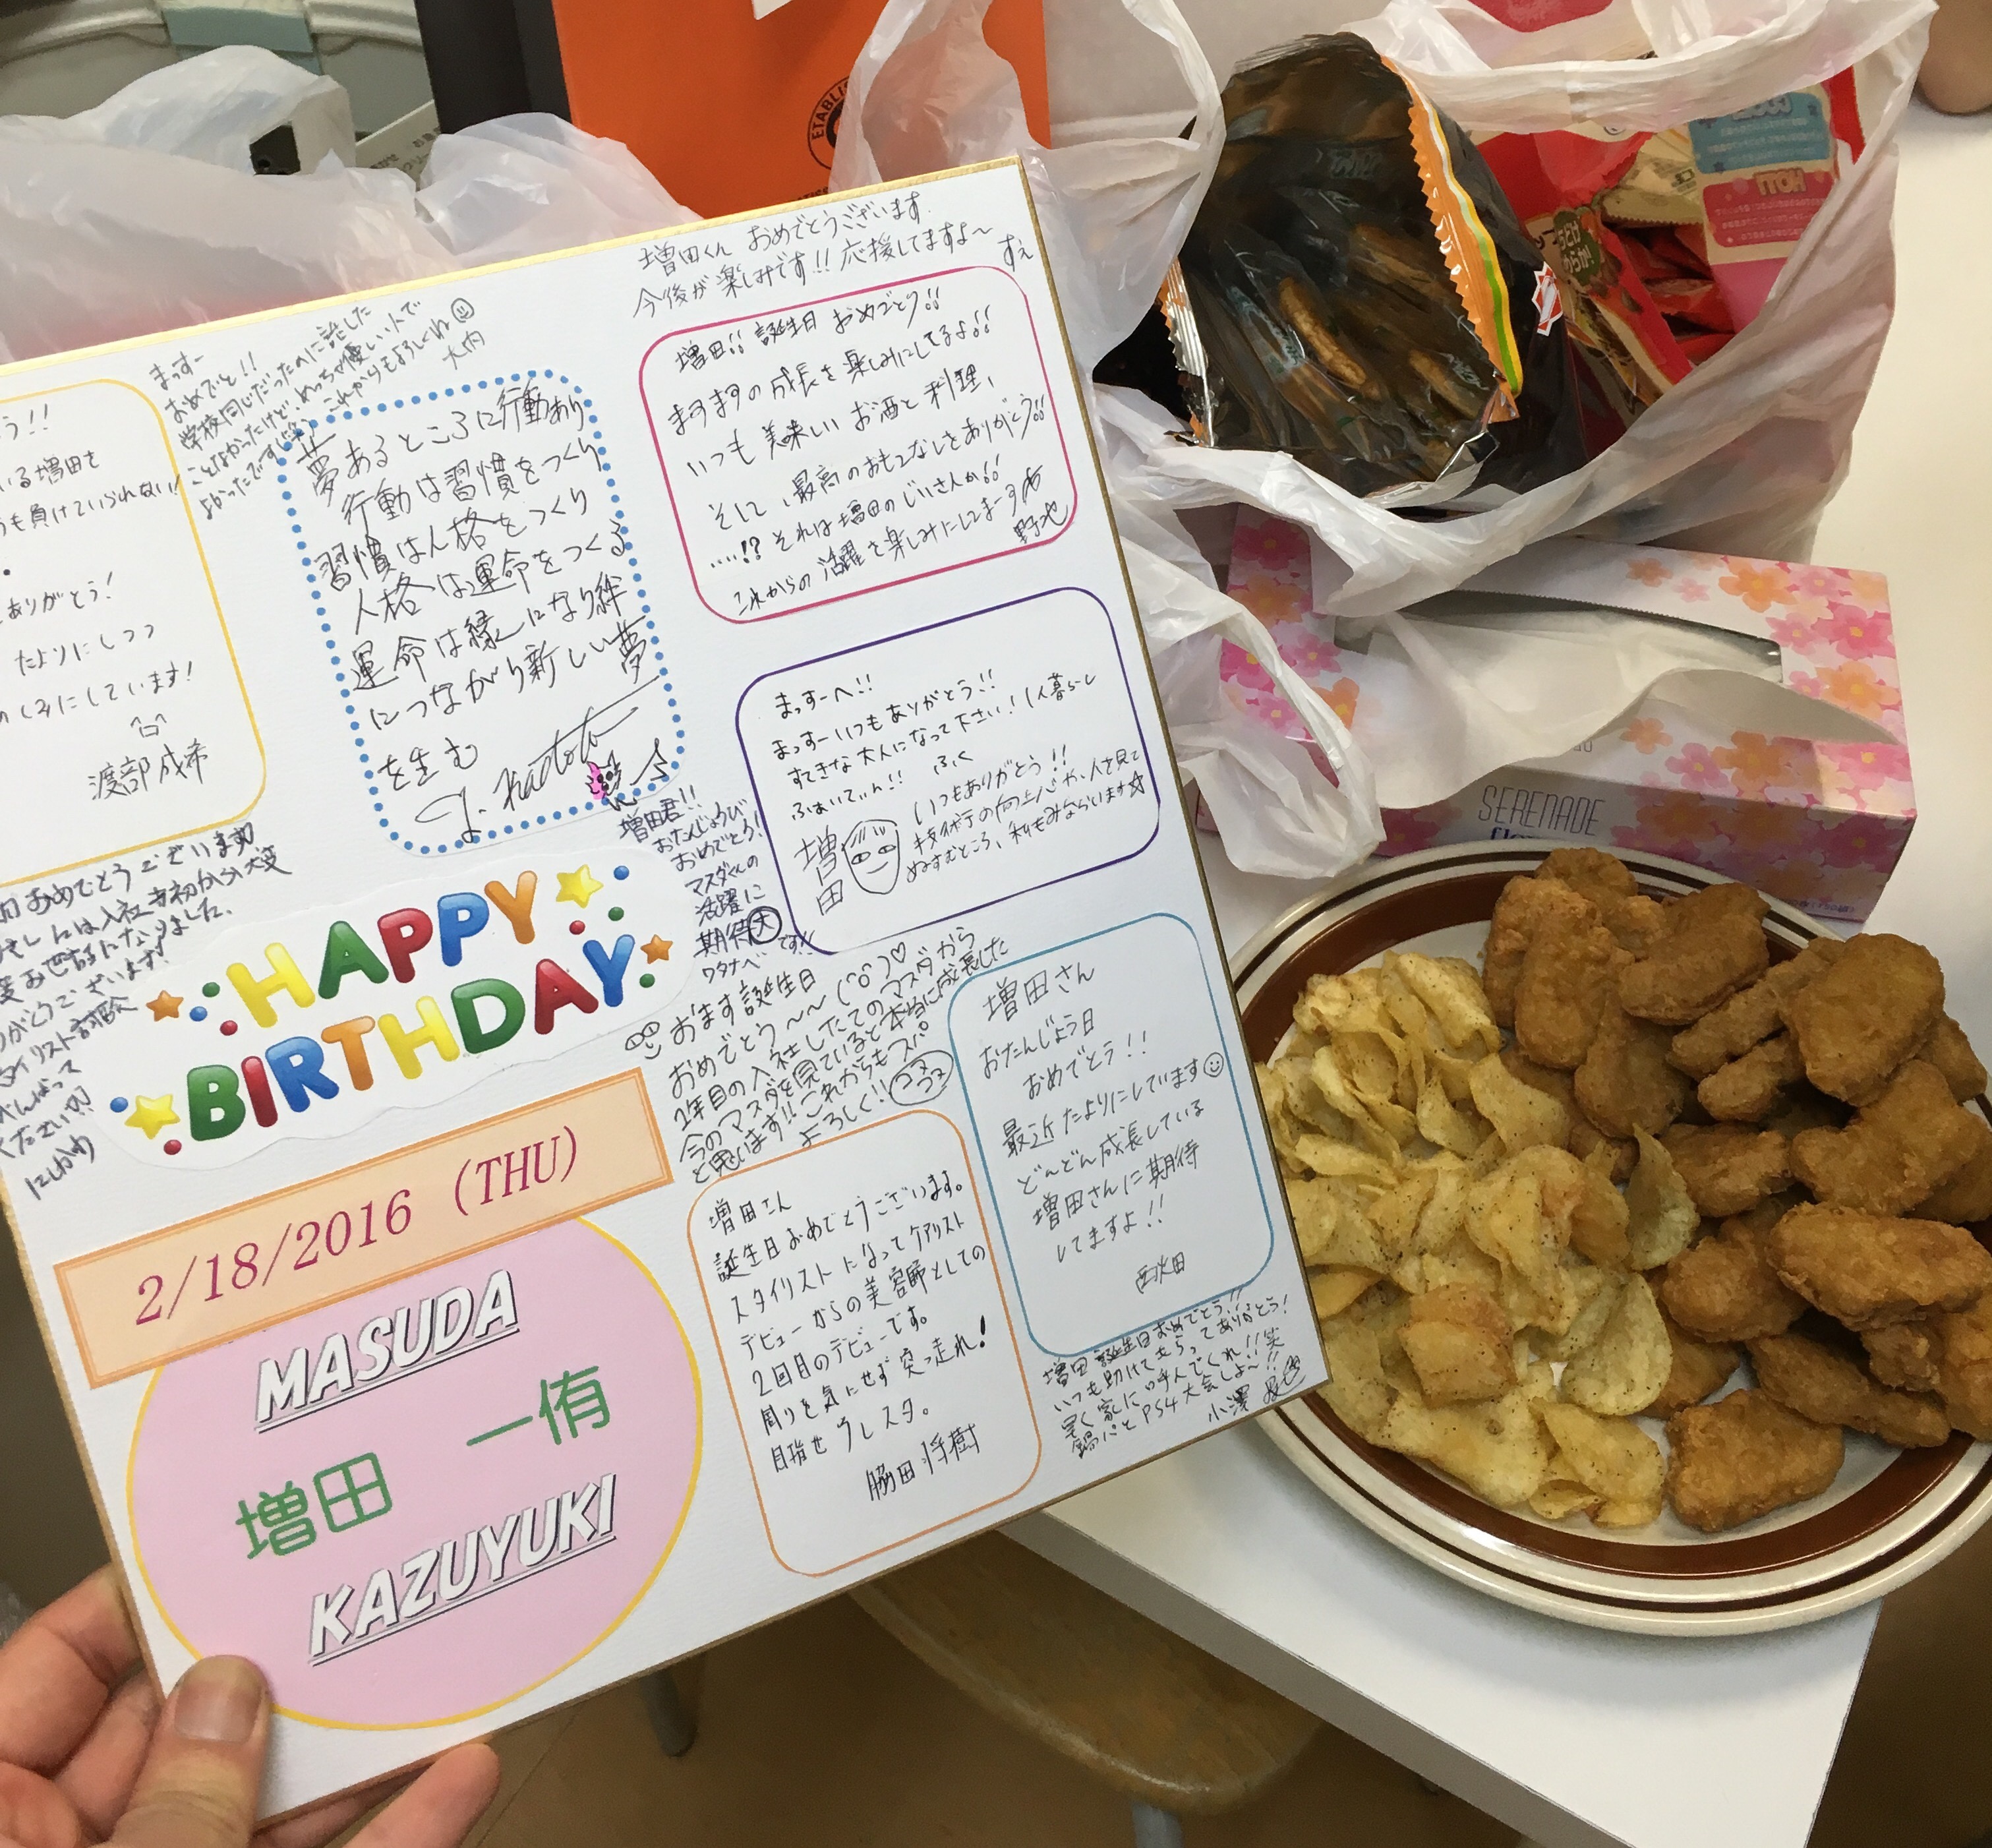 増田くん おめでとうございます.
今後が楽しみです!! 応援してますよ〜
すえ
増田!! 誕生日 おめでとう!!
ますますの成長を楽しみにしてるよ!!
いつも美味しいお酒と料理、
そして、最高のおもてなしをありがとう!!
....!? それは増田のじいさんか!!
これからの活躍を楽しみにしてまーす
野地
まっすー
おめでと!!
学校同じだったのに話した
ことなかったけど、めっちゃ優しい人で
よかったです
これからもよろしくね
大内
う!!
いる増田を
も負けていられない!
ありがとう!
たよりにしつつ
しみにしています!
渡部成希
夢あるところに行動あり
行動は習慣をつくり
習慣は人格をつくり
人格は運命をつくる
運命は縁になり絆
につながり新しい夢
を生む
まっすーへ!!
まっすーいつもありがとう!!
すてきな大人になって下さい! 1人暮らし
ふぁいてぃん!! ふく
いつもありがとう!!
技術の向上心や、人を見て
ぬすむところ、私もみならいます☆
増田
増田君!!
おたんじょうび
おめでとう!
マスダくんの
活躍に
期待大です!!
ワタナベ
おめでとうございます
には入社当初から大変
お世話になりました。
がとうございます!
タイリスト
がんばって
ください
にしかわ
HAPPY
BIRTHDAY
おます誕生日
おめでとう〜〜
2年目の入社したてのマスダから
今のマスダを見ていると本当に成長した
と思います!! これからもズバ
よろしく!!
増田さん
おたんじょう日
おめでとう!!
最近たよりにしています
どんどん成長している
増田さんに期待
してますよ!!
2/18/2016 (THU)
MASUDA
増田 一侑
KAZUYUKI
増田さん
誕生日おめでとうございます。
スタイリストになってケアリスト
デビューからの美容師としての
2回目のデビューです。
周りを気にせず突っ走れ!
目指せウレスタ。
脇田将樹
増田 誕生日おめでとう!!
いつも助けてもらってありがとう!
早く家に呼んでくれ!! 笑
鍋パとPS4大会しよ〜!!
小澤
SERENADE